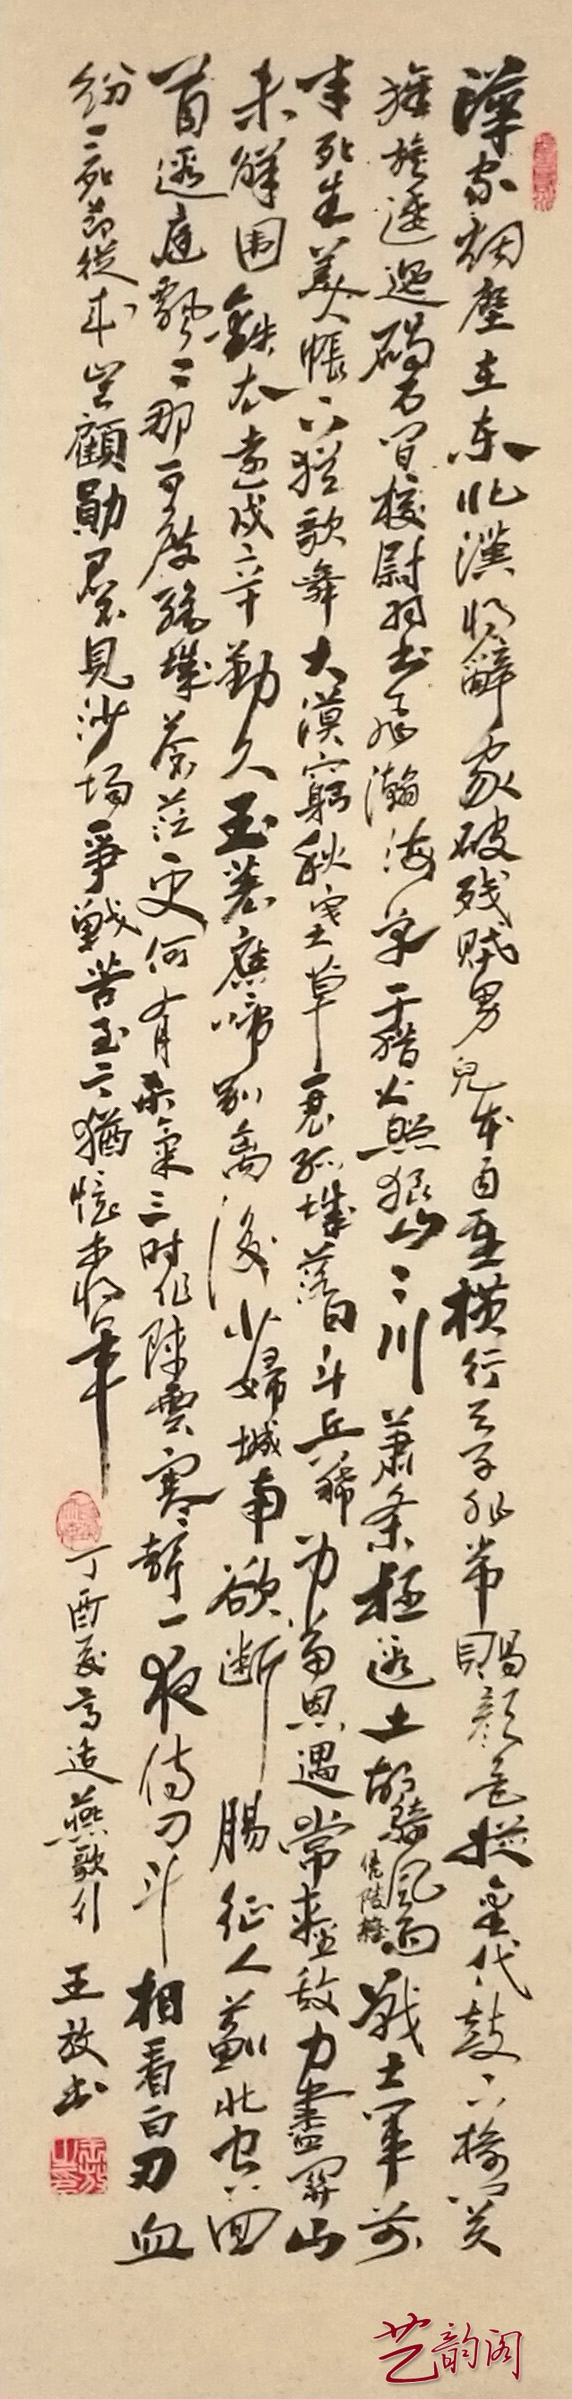 漢家烟塵在東北漢将辭家破残贼男兒本自重横行天子非常賜顔色摐金伐鼓下榆关
旌旆逶迤碣石间校尉羽书飛瀚海单于猎火照狼山〻川萧条極邊土胡騎憑陵雜風雨戰士軍前
半死生美人帳下猶歌舞大漠窮秋塞草衰孤城落日斗兵稀为當恩遇常輕敌力盡関山
未解围鐵衣遠戍辛勤久玉箸應啼别离後少婦城南欲断腸征人薊北空回
首邊庭飄〻那可度絶域苍茫更何有杀氣三时作陣雲寒聲一夜傳刁斗相看白刃血
紛〻死節從来豈顧勛君不見沙場争戰苦至今猶憶李将軍
丁酉夏高适燕歌行 王放书
艺韵阁